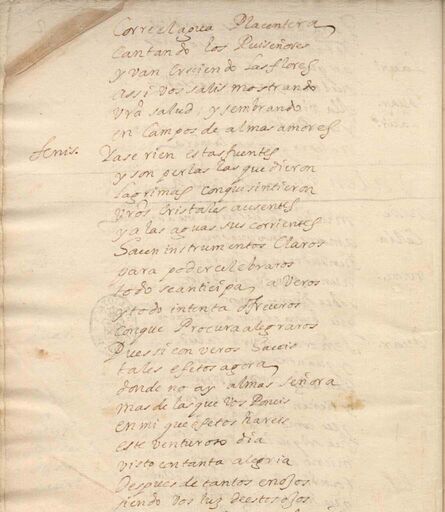 Corre el agua Placentera
Cantando los Ruiseñores
y van Creciendo las flores
assi vos salis mostrando
vrã salud, y sembrando
en Campos de almas amores
fenis. Ya se rien estas fuentes
y son perlas las que dieron
lagrimas con que sintieron
vr̃os Cristales ausentes
y a las aguas sus corrientes
Sacen instrumentos Claros
para poder celebraros
todo se anticipa, a Veros
y todo intenta ofreceros
Con que Procura alegraros
Pues si con veros haceis
tales efetos agora
donde no ay almas señora
mas de las que vos Poneis
en mi que efetos hareis
este venturoso dia
visto con tanta alegria
Despues de tantos enojos
siendo vos luz destos ojos